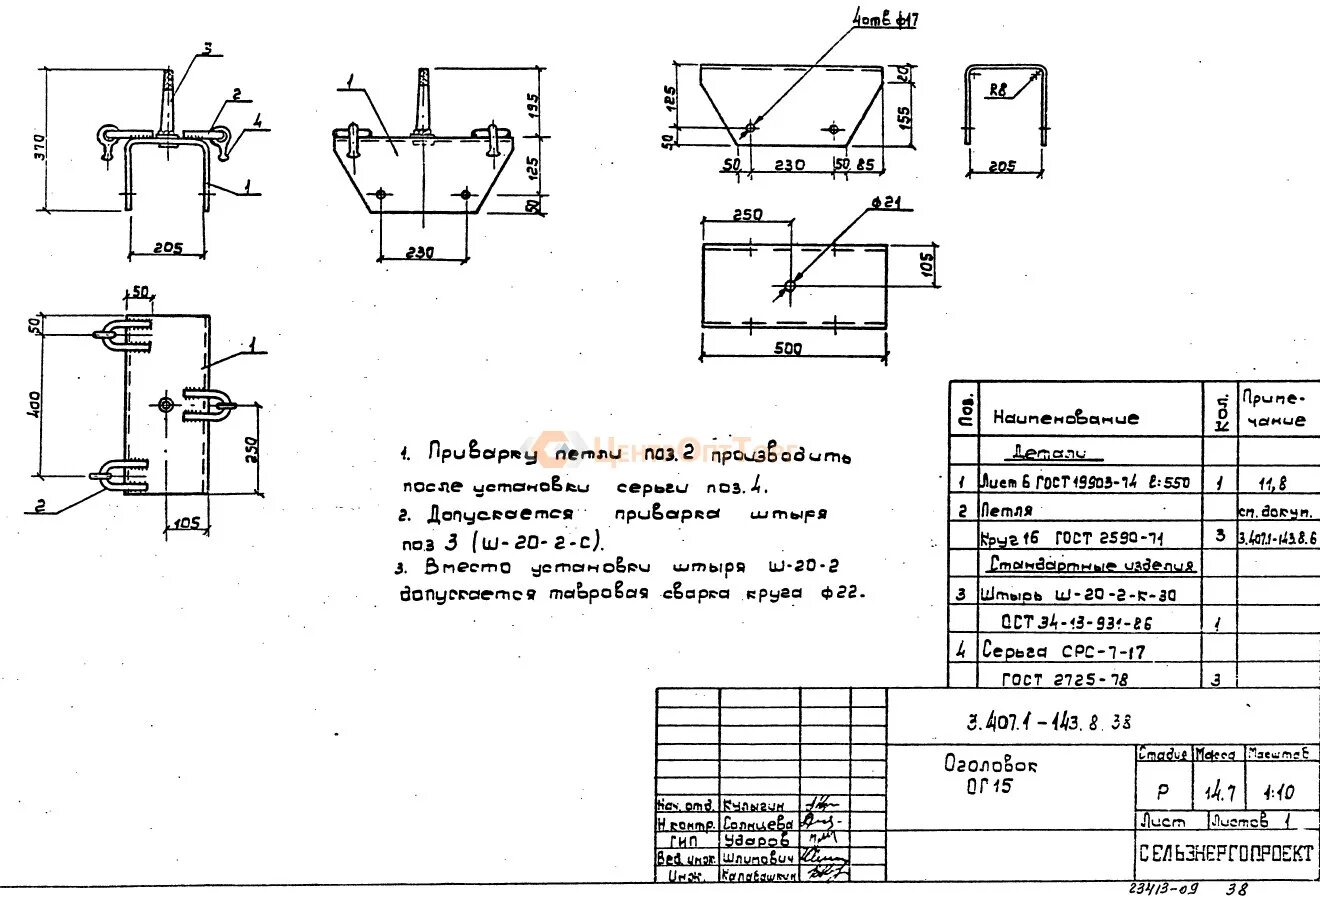 4отв ф17
3
2
4
1
370
205
1
195
125
50
230
125
50
50
230
50
85
20
155
R8
205
250
ф21
105
500
50
50
400
1
250
105
2
ЦентрОптТорг
1. Приварку петли поз.2 производить
после установки серьги поз.4.
2. Допускается приварка штыря
поз 3 (Ш-20-2-С).
3. Вместо установки штыря Ш-20-2
допускается тавровая сварка круга ф22.
Поз. Наименование Кол. Приме-
чание
Детали
1 Лист 6 ГОСТ 19903-74 ℓ=550 1 11,8
2 Петля см. докум.
Круг 16 ГОСТ 2590-71 3 3.407.1-143.8.6
Стандартные изделия
3 Штырь Ш-20-2-К-30
ОСТ 34-13-931-86 1
4 Серьга СРС-7-17
ГОСТ 2725-78 3
3.407.1-143.8.38
Оголовок
ОГ15
Стадия Масса Масштаб
Р 14.7 1:10
Лист Листов 1
СЕЛЬЭНЕРГОПРОЕКТ
Нач. отд. Кулыгин
Н контр. Солнцева
ГИП Ударов
Вед. инж. Шлимович
Инж. Калабашкин
23413-09 38